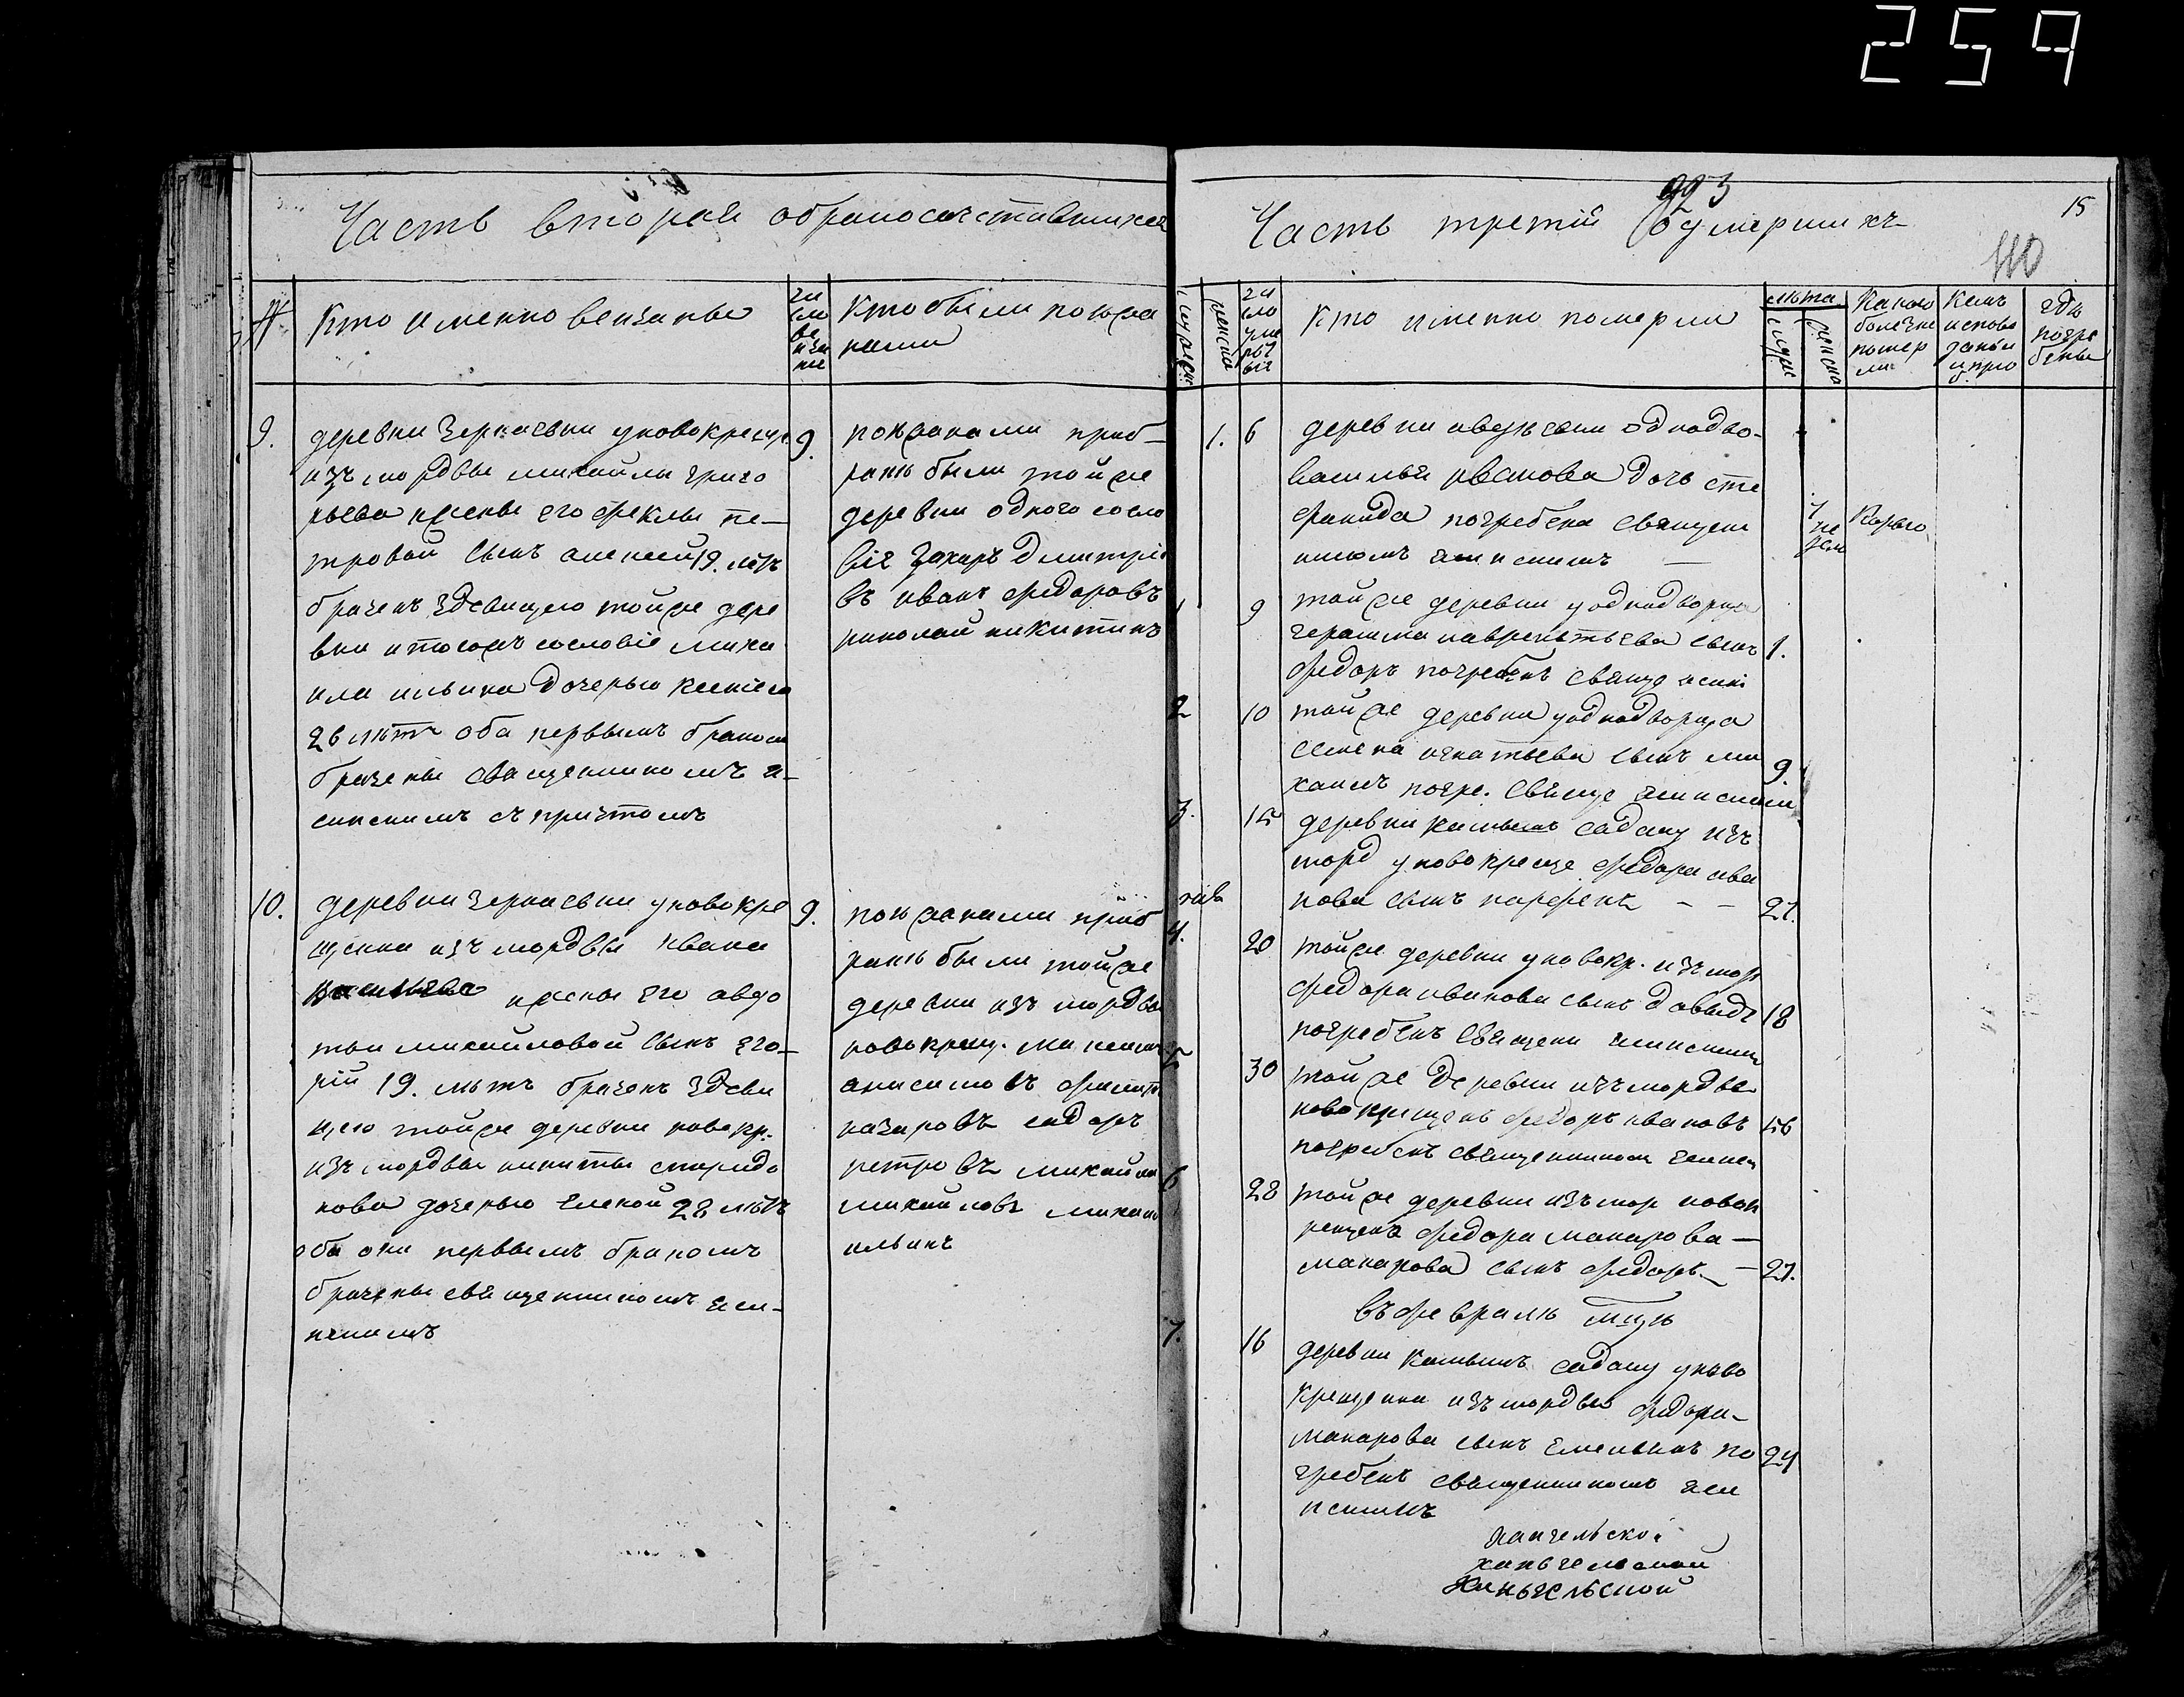 259
Часть вторая обракосочетавшихся
№
Кто именно венчаны
чи
сло
ве
нча
ние
Кто были поезжа
нами
9.
деревни Зеркаевки у новокреще
изъ мордвы михайлы григо
рьева и жены его феклы пе-
тровой сынъ алексей 19. летъ
браченъ здевицею той же дере
вни и того жъ сословіе миха
ила ильина дочерью ксенiею
26 летъ оба первымъ бракомъ
брачены священникомъ
съ причтомъ
9.
поезжанами при б-
ракѣ были той же
деревни одного сосло
вiе Захаръ Дмитрiе
въ иванъ федоровъ
николай никитинъ
10.
деревни Зеркаевки у новокре
щена изъ мордвы ивана
васильева и жены его авдо
тьи михайловой сынъ его-
рiй 19. летъ браченъ здеви
цею той же деревни новокр.
изъ мордвы никиты спиридо
нова дочерью еленой 22 летъ
оба они первымъ бракомъ
брачены священникомъ
9.
поезжанами при б
ракѣ были той же
деревни изъ мордвы
новокрещ. максимъ
анисимовъ филипъ
назаровъ сидоръ
петровъ михайла
михайловъ михаилъ
ильинъ
993
15
110
Часть третiй обумершихъ
мужеск
женска
чи
сло
уме
ры
Кто именно померли
лѣта
мужс
женско
Какою
болѣзнею
помер
ли
Кемъ
испове
даны
и прiо
б.
гдѣ
погре
бены
1. 6
деревни однодво-
василья иванова дочь сте
фанида погребена священ
никомъ
7 не
дел
Корью
1 9
той же деревни у однодворца
герасима лаврентьева сынъ 1.
федоръ погребенъ свяще
2 10
той же деревни у однодворца
семена игнатьева сынъ ми 9.
хаилъ погре. свяще
3. 15
деревни камышъ садаку изъ
морд у новокреще федора ива
нова сынъ парфенъ - - 27.
4. 20
той же деревни у новокр. изъ мор
федора иванова сынъ давыдъ 18
погребенъ священ
5 30
той же деревни изъ мордвы
новокрещенъ федоръ ивановъ 56
погребенъ священникомъ
6 28
той же деревни изъ мор новок
рещенъ федора макарова -
макарова сынъ федоръ - 27.
въ феврале мцѣ
7. 16
деревни камышъ садаку у ново
крещена изъ мордвы федора-
макарова сынъ емельянъ по 24
гребенъ священникомъ